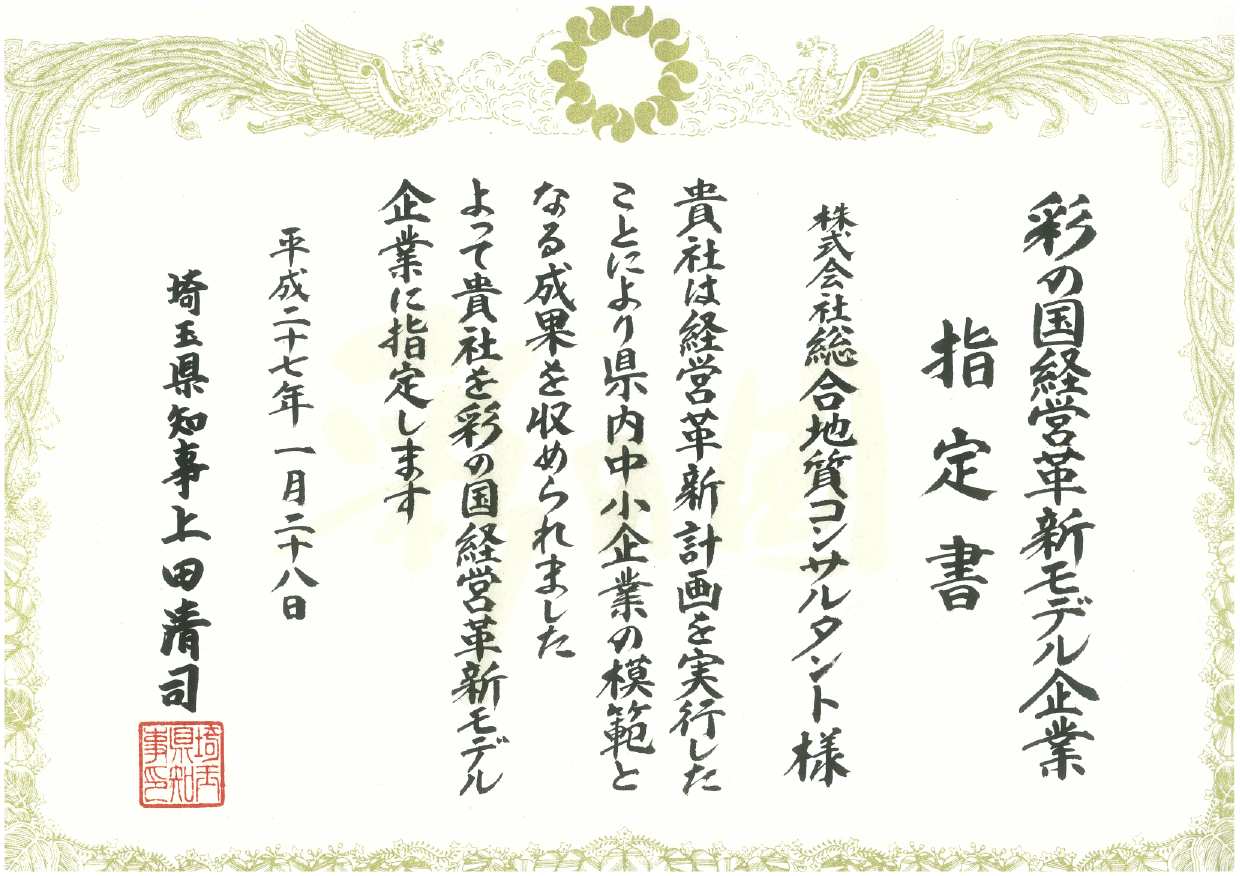 彩の国経営革新モデル企業
指定書
株式会社総合地質コンサルタント様
貴社は経営革新計画を実行した
ことにより県内中小企業の模範と
なる成果を収められました
よって貴社を彩の国経営革新モデル
企業に指定します
平成二十七年一月二十八日
埼玉県知事上田清司
埼玉
県知
事印